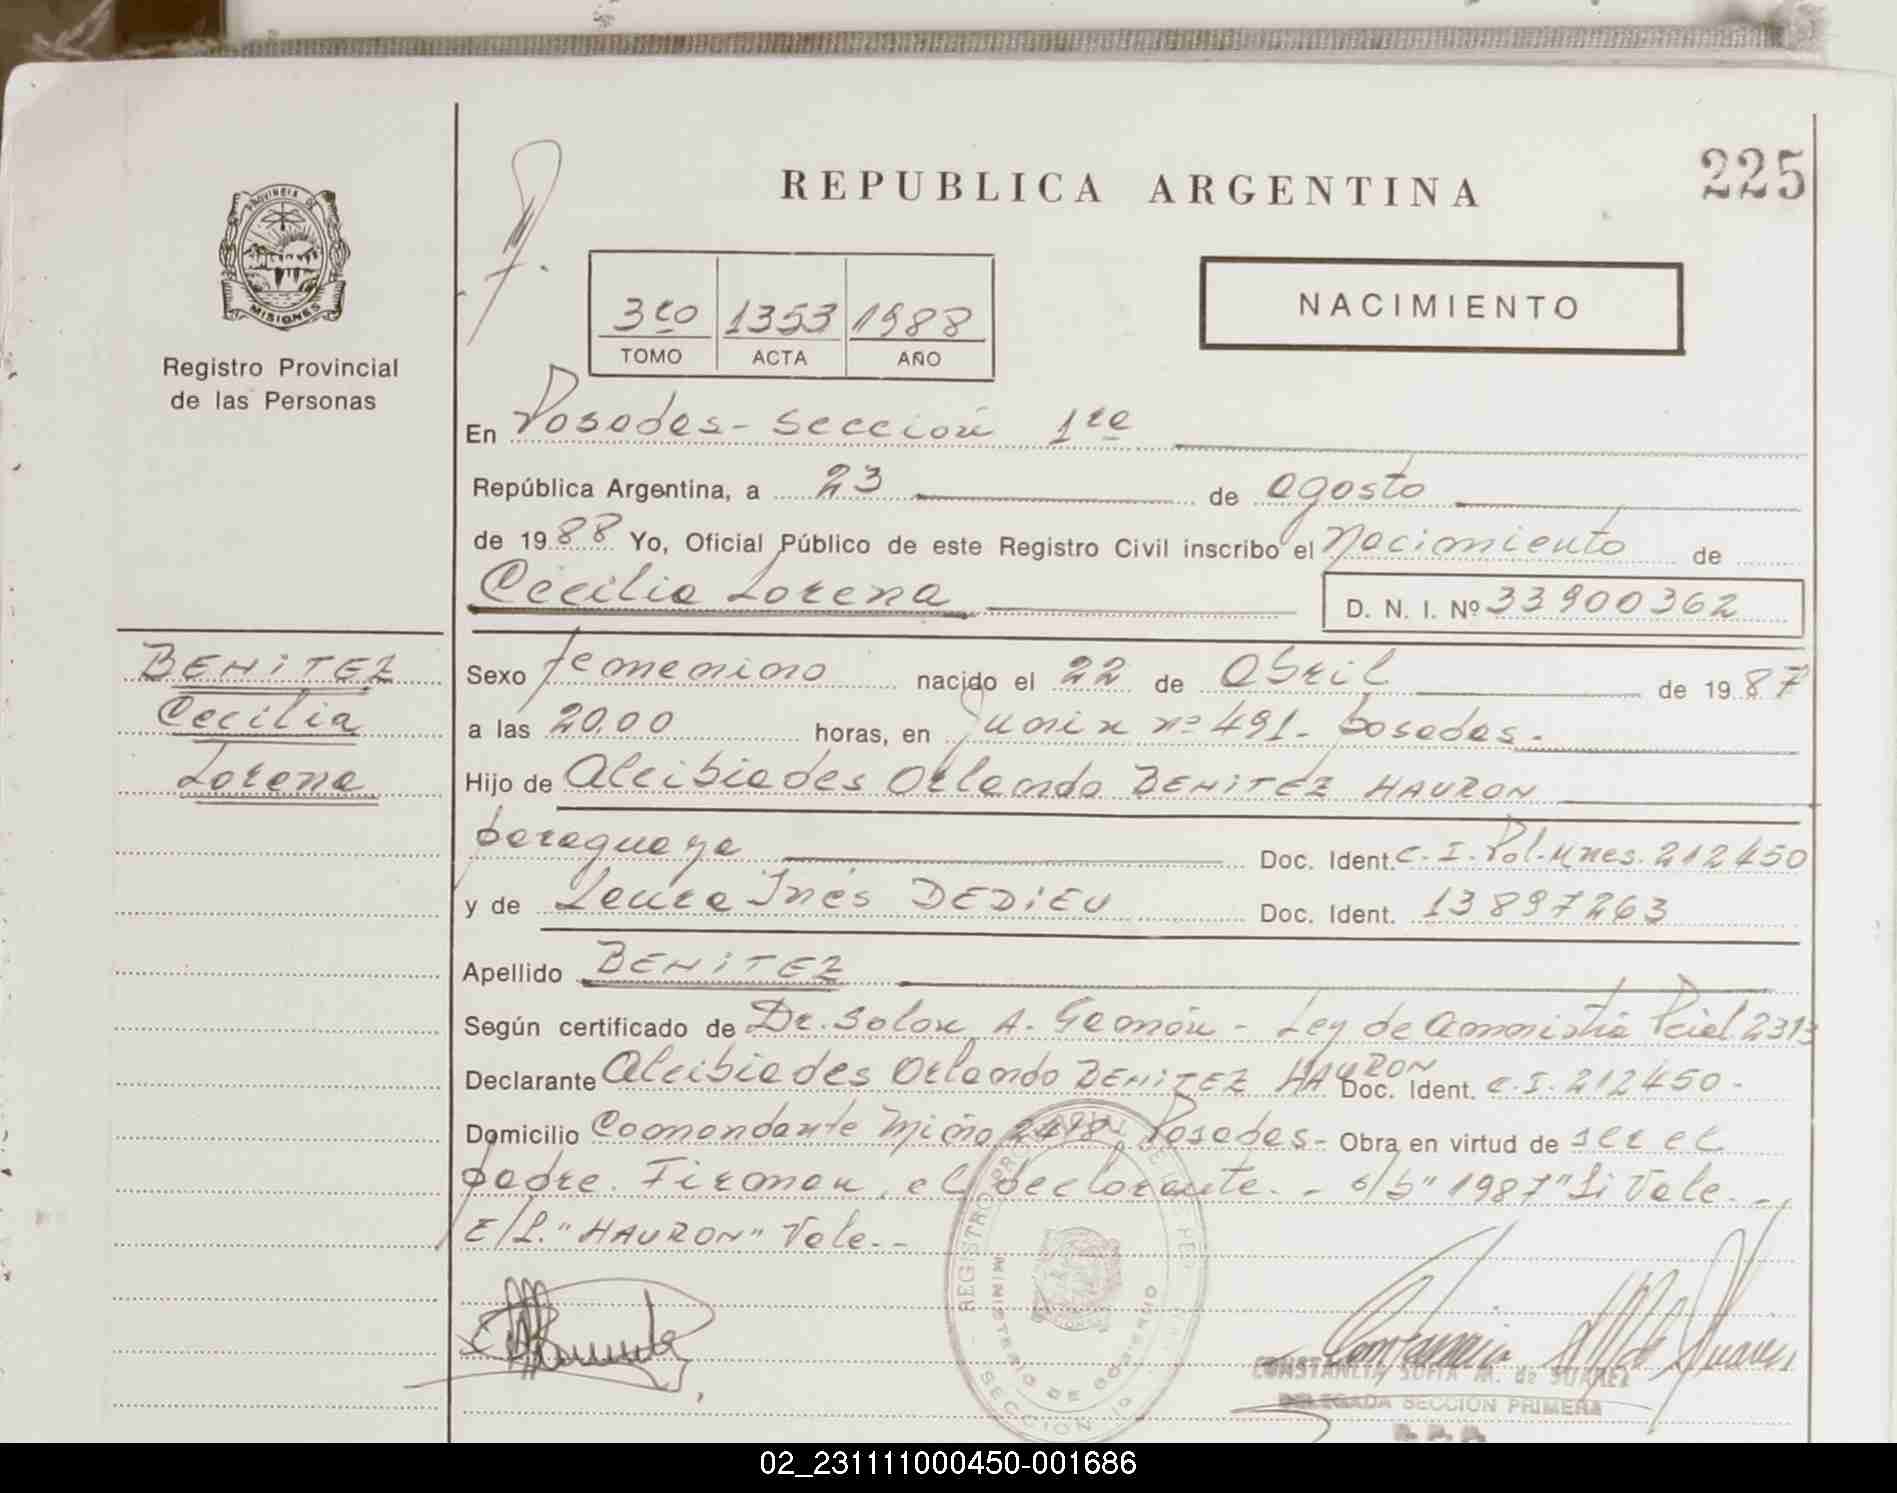 225
REPUBLICA ARGENTINA
PROVINCIA DE
MISIONES
Registro Provincial
de las Personas
3ro 1353 1988
TOMO ACTA AÑO
NACIMIENTO
En Posadas - Sección 1ra
República Argentina, a 23 de agosto
de 1988 Yo, Oficial Público de este Registro Civil inscribo el Nacimiento de
Cecilia Lorena
D. N. I. Nº 33900362
BENITEZ
Cecilia
Lorena
Sexo femenino nacido el 22 de Abril de 1987
a las 20,00 horas, en Junin nº 491 - posadas.
Hijo de Alcibiades Orlando BENITEZ HAURON
paraguaya Doc. Ident. C. I. Pol. Mnes. 212450
y de Laura Inés DEDIEU Doc. Ident. 13897263
Apellido BENITEZ
Según certificado de Dr. Solon A. Gamón - Ley de Amnistía Pcial. 2313
Declarante Alcibiades Orlando BENITEZ HAURON Doc. Ident. C. I. 212450 -
Domicilio Comandante Miño Posadas - Obra en virtud de ser el
padre. Firman, el declarante. - s/b "1987" Si Vale. -
E/L. "HAURON" Vale. -
REGISTRO
MINISTERIO DE GOBIERNO
SECCION 1ª
CONSTANCIA SOFIA M. de SUAREZ
DELEGADA SECCIÓN PRIMERA
R. P. P.
02_231111000450-001686